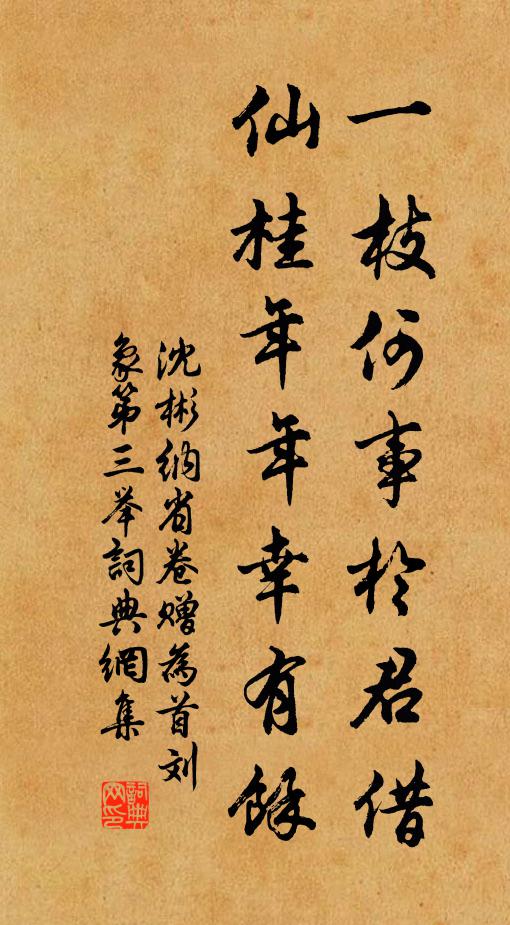 一枝何事於君借
仙桂年年幸有餘
沈彬纳省卷赠為首刘
象第三举詞典網集
詞典网印